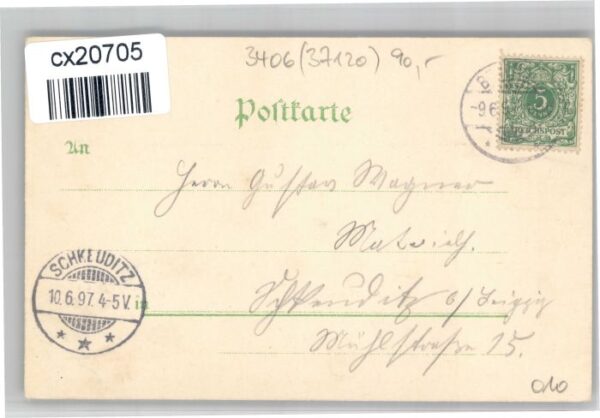 cx20705
3406 (37120) 90,-
Postkarte
5
REICHSPOST
-9.6.
An
Herrn Gustav Wagner
Schkeuditz b/Leipzig
Mühlstraße 15.
SCHKEUDITZ
10.6.97. 4-5V.
in